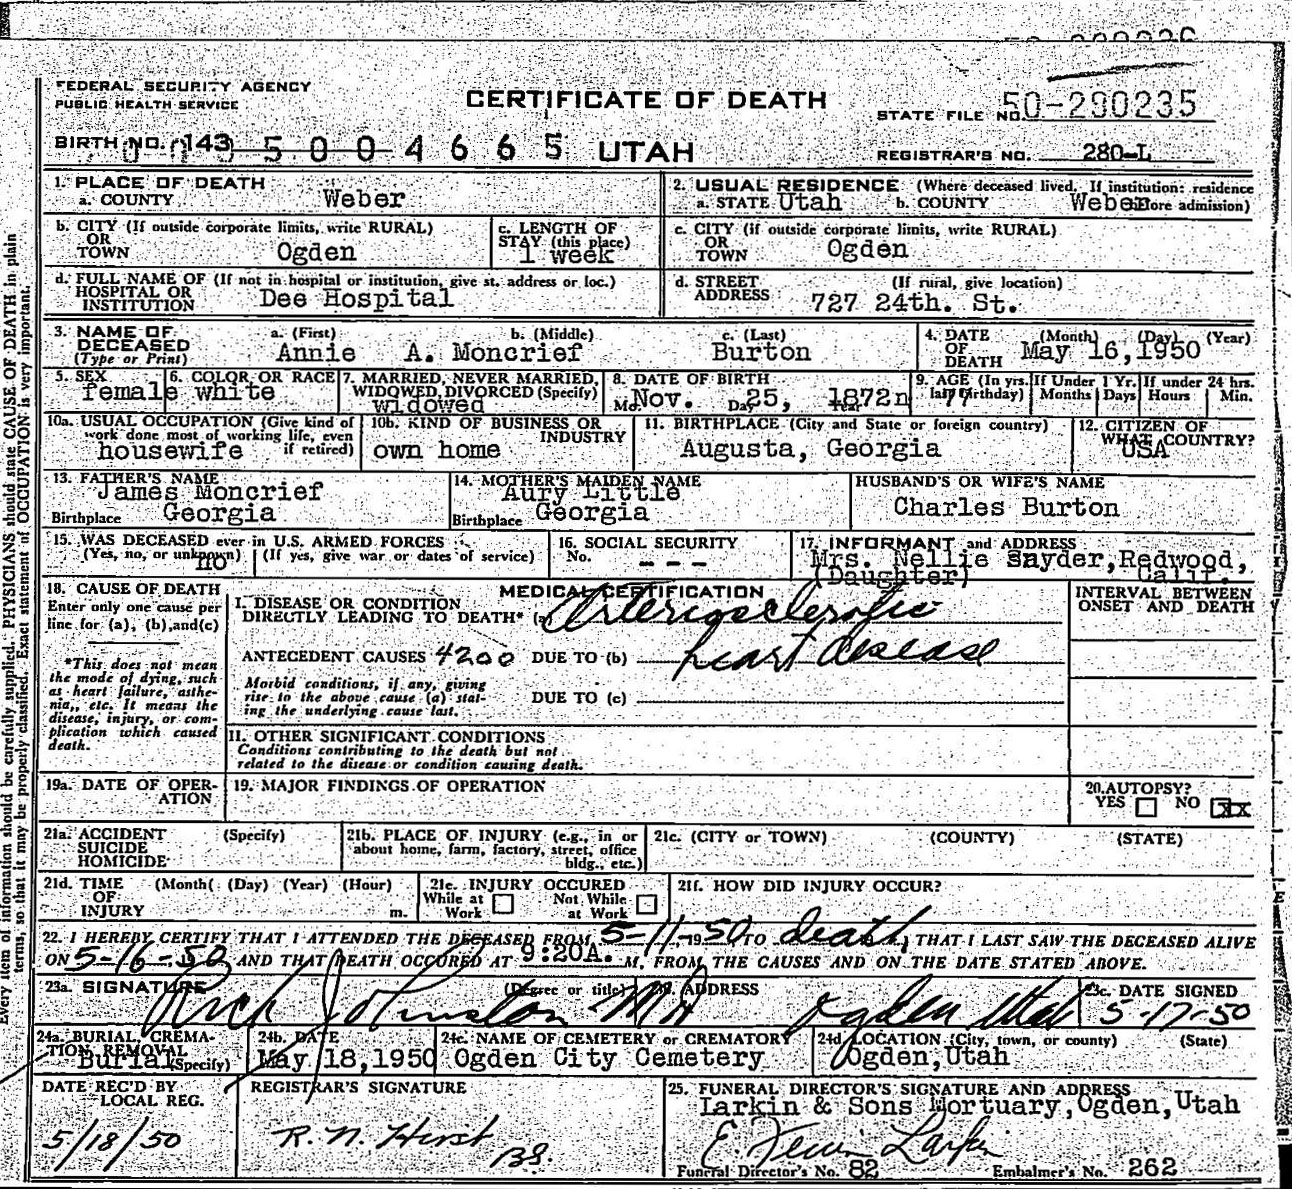 FEDERAL SECURITY AGENCY
PUBLIC HEALTH SERVICE
CERTIFICATE OF DEATH
STATE FILE NO. 50-290235
BIRTH NO. 143 5 0 0 4 6 6 5 UTAH
REGISTRAR'S NO. 280-L
1. PLACE OF DEATH
a. COUNTY Weber
2. USUAL RESIDENCE (Where deceased lived. If institution: residence before admission)
a. STATE Utah b. COUNTY Weber
b. CITY (If outside corporate limits, write RURAL)
OR
TOWN Ogden
c. LENGTH OF
STAY (this place)
1 week
c. CITY (if outside corporate limits, write RURAL)
OR
TOWN Ogden
d. FULL NAME OF (If not in hospital or institution, give st. address or loc.)
HOSPITAL OR
INSTITUTION Dee Hospital
d. STREET (If rural, give location)
ADDRESS 727 24th. St.
3. NAME OF
DECEASED
(Type or Print)
a. (First) b. (Middle) c. (Last)
Annie A. Moncrief Burton
4. DATE (Month) (Day) (Year)
OF
DEATH May 16,1950
5. SEX
female
6. COLOR OR RACE
white
7. MARRIED, NEVER MARRIED,
WIDOWED, DIVORCED (Specify)
widowed
8. DATE OF BIRTH
Mo. Nov. Day 25, Year 1872
9. AGE (In yrs. last birthday)
77
If Under 1 Yr.
Months Days
If under 24 hrs.
Hours Min.
10a. USUAL OCCUPATION (Give kind of
work done most of working life, even
if retired)
housewife
10b. KIND OF BUSINESS OR
INDUSTRY
own home
11. BIRTHPLACE (City and State or foreign country)
Augusta, Georgia
12. CITIZEN OF
WHAT COUNTRY?
USA
13. FATHER'S NAME
James Moncrief
Birthplace Georgia
14. MOTHER'S MAIDEN NAME
Aury Little
Birthplace Georgia
HUSBAND'S OR WIFE'S NAME
Charles Burton
15. WAS DECEASED ever in U.S. ARMED FORCES
(Yes, no, or unknown) (If yes, give war or dates of service)
no
16. SOCIAL SECURITY
No. - - -
17. INFORMANT and ADDRESS
Mrs. Nellie Snyder, Redwood,
(Daughter) Calif.
18. CAUSE OF DEATH
Enter only one cause per
line for (a), (b), and (c)
*This does not mean
the mode of dying, such
as heart failure, asthe-
nia,, etc. It means the
disease, injury, or com-
plication which caused
death.
MEDICAL CERTIFICATION
I. DISEASE OR CONDITION
DIRECTLY LEADING TO DEATH* (a) Arteriosclerotic
ANTECEDENT CAUSES 4200 DUE TO (b) heart disease
Morbid conditions, if any, giving
rise to the above cause (a) stat-
ing the underlying cause last.
DUE TO (c)
INTERVAL BETWEEN
ONSET AND DEATH
II. OTHER SIGNIFICANT CONDITIONS
Conditions contributing to the death but not
related to the disease or condition causing death.
19a. DATE OF OPER-
ATION
19. MAJOR FINDINGS OF OPERATION
20. AUTOPSY?
YES NO XX
21a. ACCIDENT (Specify)
SUICIDE
HOMICIDE
21b. PLACE OF INJURY (e.g., in or
about home, farm, factory, street, office
bldg., etc.)
21c. (CITY or TOWN) (COUNTY) (STATE)
21d. TIME (Month( (Day) (Year) (Hour)
OF
INJURY m.
21e. INJURY OCCURED
While at Work Not While at Work
21f. HOW DID INJURY OCCUR?
22. I HEREBY CERTIFY THAT I ATTENDED THE DECEASED FROM 5-11, 1950 TO death, THAT I LAST SAW THE DECEASED ALIVE
ON 5-16-50 AND THAT DEATH OCCURED AT 9:20A. M, FROM THE CAUSES AND ON THE DATE STATED ABOVE.
23a. SIGNATURE (Degree or title) 23b. ADDRESS 23c. DATE SIGNED
Johnston MD Ogden Utah 5-17-50
24a. BURIAL, CREMA-
TION, REMOVAL
Burial (Specify)
24b. DATE
May 18,1950
24c. NAME OF CEMETERY or CREMATORY
Ogden City Cemetery
24d LOCATION (City, town, or county) (State)
Ogden, Utah
DATE REC'D BY
LOCAL REG.
5/18/50
REGISTRAR'S SIGNATURE
R. N. Hirst
BS.
25. FUNERAL DIRECTOR'S SIGNATURE AND ADDRESS
Larkin & Sons Mortuary, Ogden, Utah
E. Larkin
Funeral Director's No. 82 Embalmer's No. 262
Every item of information should be carefully supplied. PHYSICIANS should state CAUSE OF DEATH in plain
terms, so that it may be properly classified. Exact statement of OCCUPATION is very important.